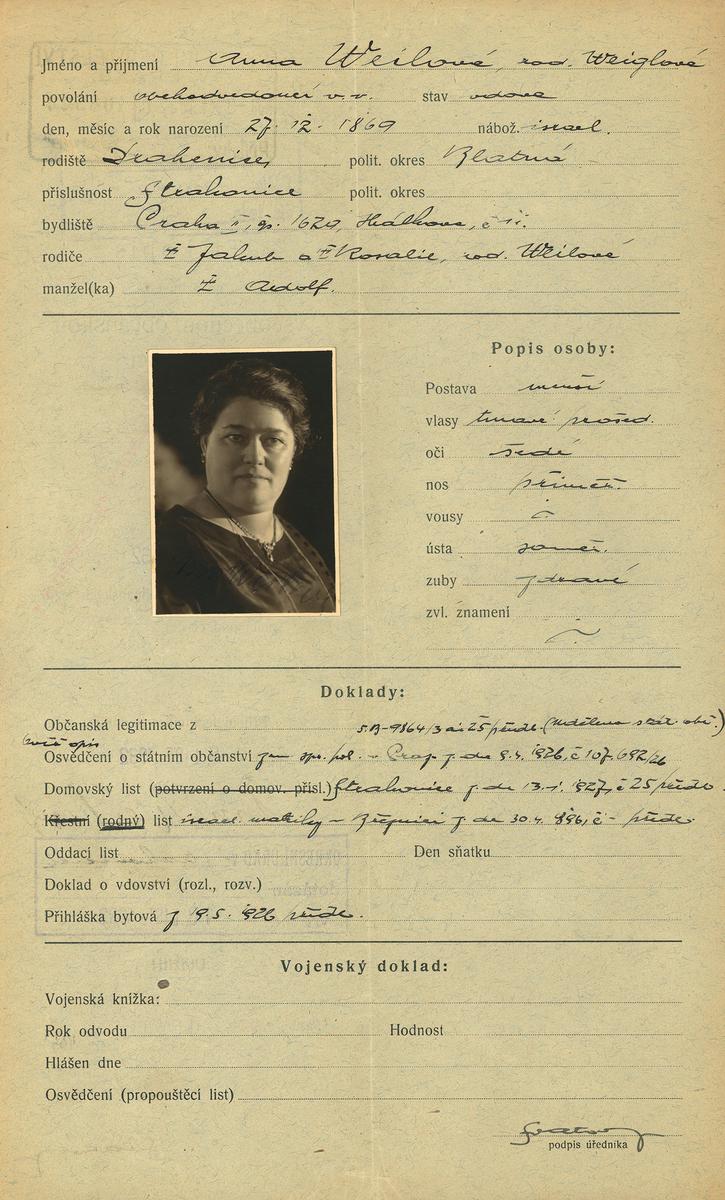 Jméno a příjmení Anna Weilová, roz. Weiglová
povolání obchodvedoucí v. v. stav vdova
den, měsíc a rok narození 27. 12. 1869 nábož. israel.
rodiště Drahenice, polit. okres Blatná
příslušnost Strakonice polit. okres
bydliště Praha II, čp. 1629, Hálkova, č 11.
rodiče Ɨ Jakub a Ɨ Rosalie, roz. Weilová
manžel(ka) Ɨ Adolf.
Popis osoby:
Postava menší
vlasy tmavé prošed.
oči šedé
nos přiměř.
vousy
ústa souměr.
zuby zdravé
zvl. znamení
Doklady:
Občanská legitimace z 5.B-9864/3 ai 25 předl. (Udělena stát. obč.)
Osvědčení o státním občanství zem. spr. pol. - Praze z de 9.4. 1926, č 107.692/26
Domovský list (potvrzení o domov. přísl.) Strakonice z de 13. 1. 1927, č 25 předl.
Křestní (rodný) list israel. matriky - Březnici z de 30.4. 1896, č - předl.
Oddací list Den sňatku
Doklad o vdovství (rozl., rozv.)
Přihláška bytová z 19.5. 1926 předl.
Vojenský doklad:
Vojenská knížka:
Rok odvodu Hodnost
Hlášen dne
Osvědčení (propouštěcí list)
podpis úředníka